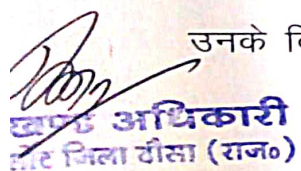 उनके
खण्ड अधिकारी
जिला दौसा (राज०)